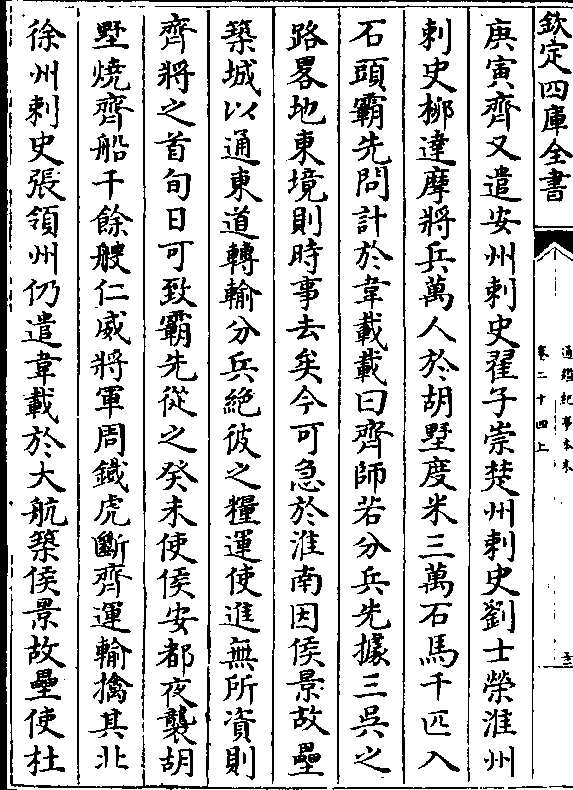 欽定四庫全書
通鑑紀事本末
卷二十四上
庚寅齊又遣安州刺史翟子崇楚州刺史劉士榮淮州
刺史柳達摩將兵萬人於胡墅度米三萬石馬千匹入
石頭霸先問計於韋載載曰齊師若分兵先據三吳之
路畧地東境則時事去矣今可急於淮南因侯景故壘
築城以通東道轉輸分兵絕彼之糧運使進無所資則
齊將之首旬日可致霸先從之癸未使侯安都夜襲胡
墅燒齊船千餘艘仁威將軍周鐵虎斷齊運輸擒其北
徐州刺史張領州仍遣韋載於大航築侯景故壘使杜